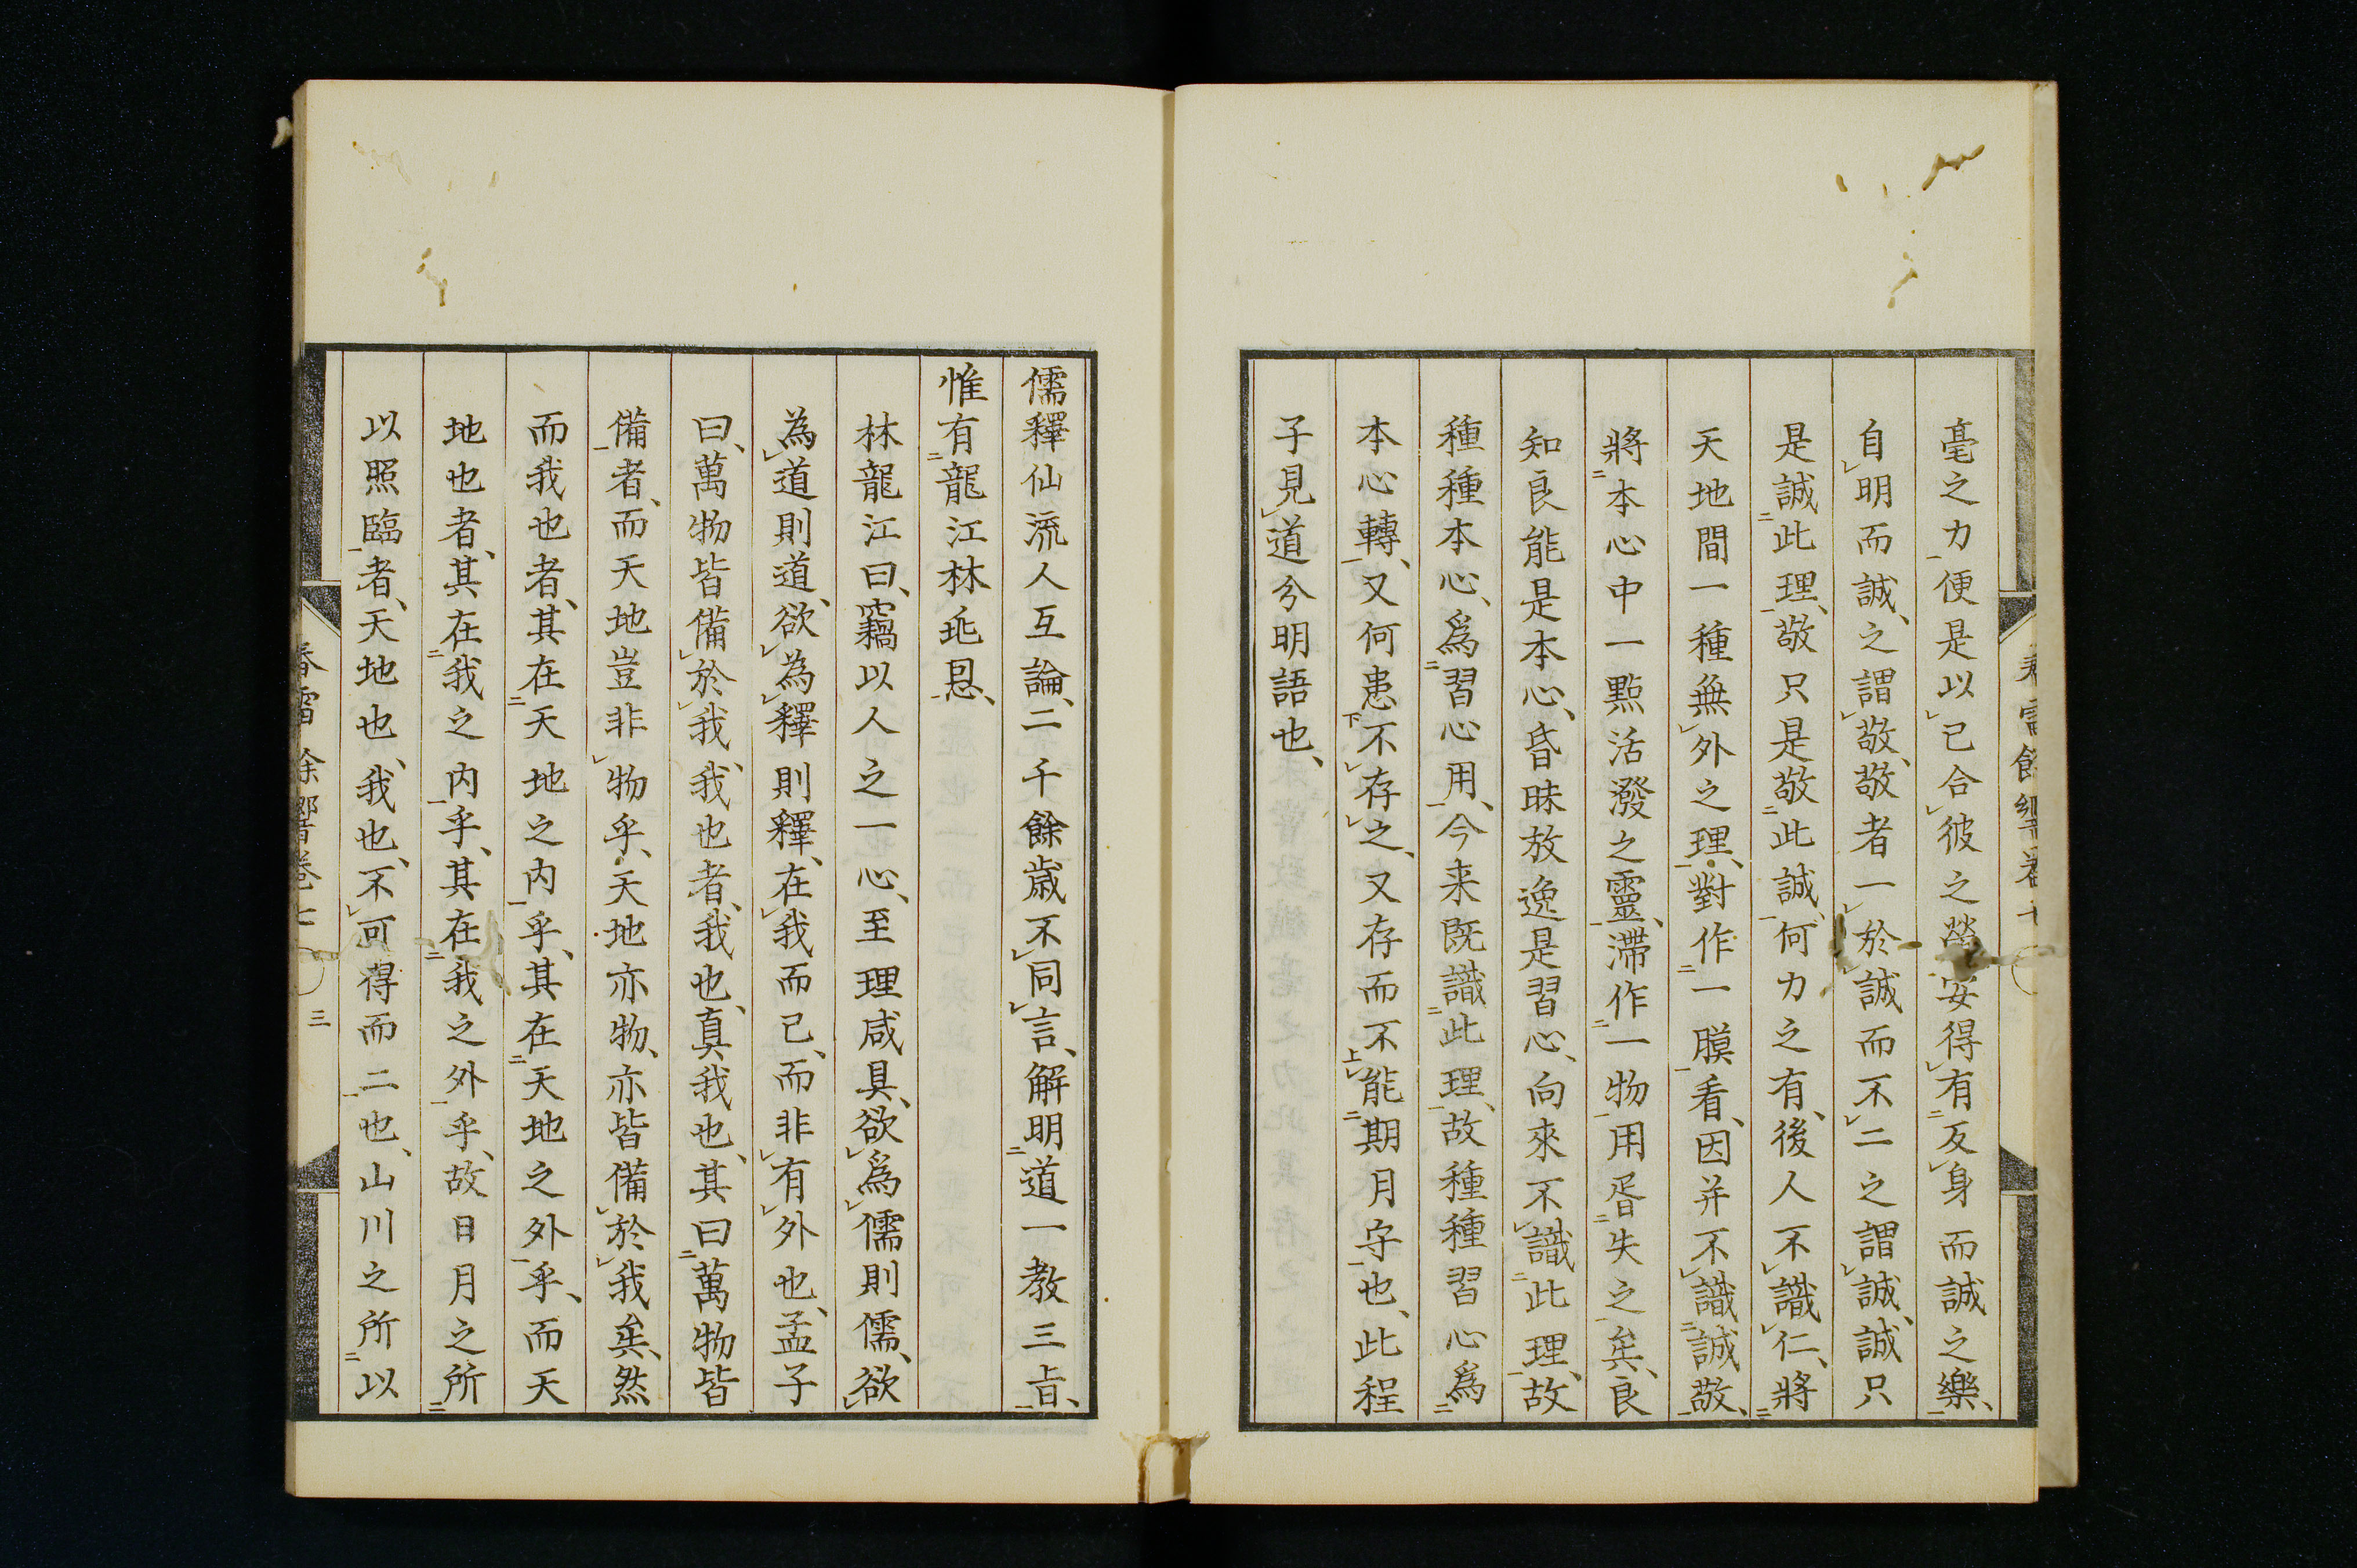 毫之力便是以己合彼之勞安得有反身而誠之樂、
自明而誠、之謂敬、敬者一於誠而不二之謂誠、誠只
是誠此理、敬只是敬此誠、何力之有、後人不識仁、將
天地間一種無外之理、對作一膜看、因并不識誠敬、
將本心中一點活潑之靈、滯作一物用胥失之矣、良
知良能是本心、昏昧放逸是習心、向來不識此理、故
種種本心、爲習心用、今来既識此理、故種種習心爲
本心轉、又何患不存之、又存而不能期月守也、此程
子見道分明語也、
儒釋仙流人互論、二千餘歲不同言、解明道一教三旨、
惟有龍江林兆恩、
林龍江曰、竊以人之一心、至理咸具、欲爲儒則儒、欲
為道則道、欲為釋則釋、在我而已、而非有外也、孟子
曰、萬物皆備於我、我也者、我也、真我也、其曰萬物皆
備者、而天地豈非物乎、天地亦物、亦皆備於我矣、然
而我也者、其在天地之内乎、其在天地之外乎、而天
地也者、其在我之内乎、其在我之外乎、故日月之所
以照臨者、天地也、我也、不可得而二也、山川之所以
餘響卷七
三